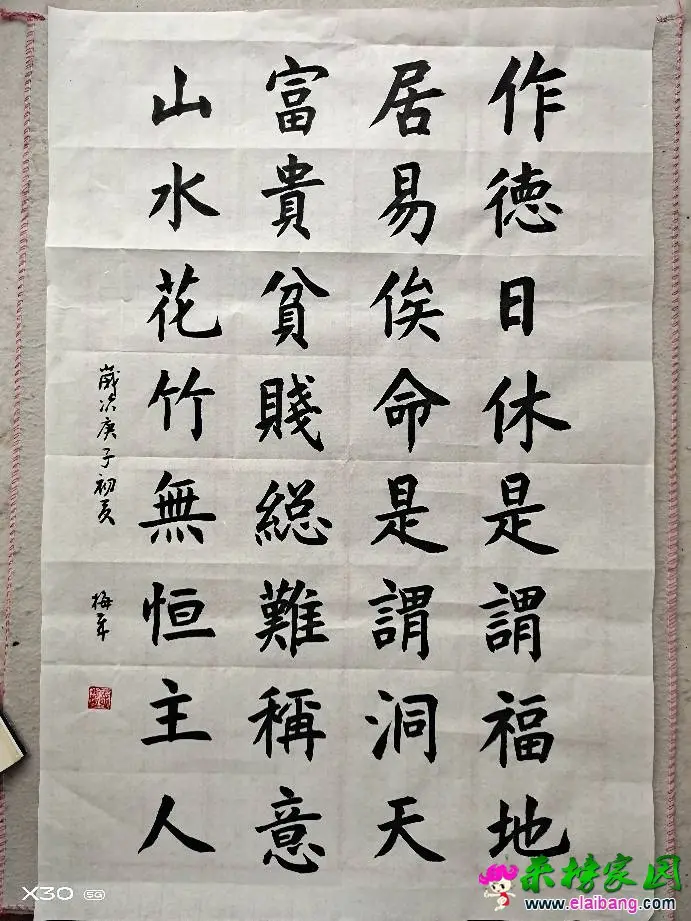 作德日休是謂福地
居易俟命是謂洞天
富貴貧賤総難稱意
山水花竹無恒主人
歲次庚子初夏
X30 5G
来榜家园
www.elaibang.com